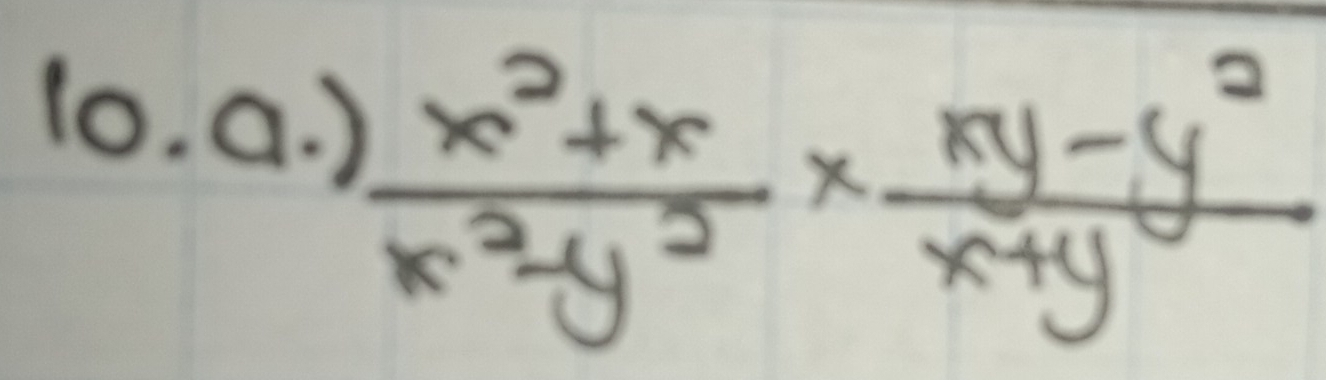 10. a.) x²+x / x²-y² × xy-y² / x+y